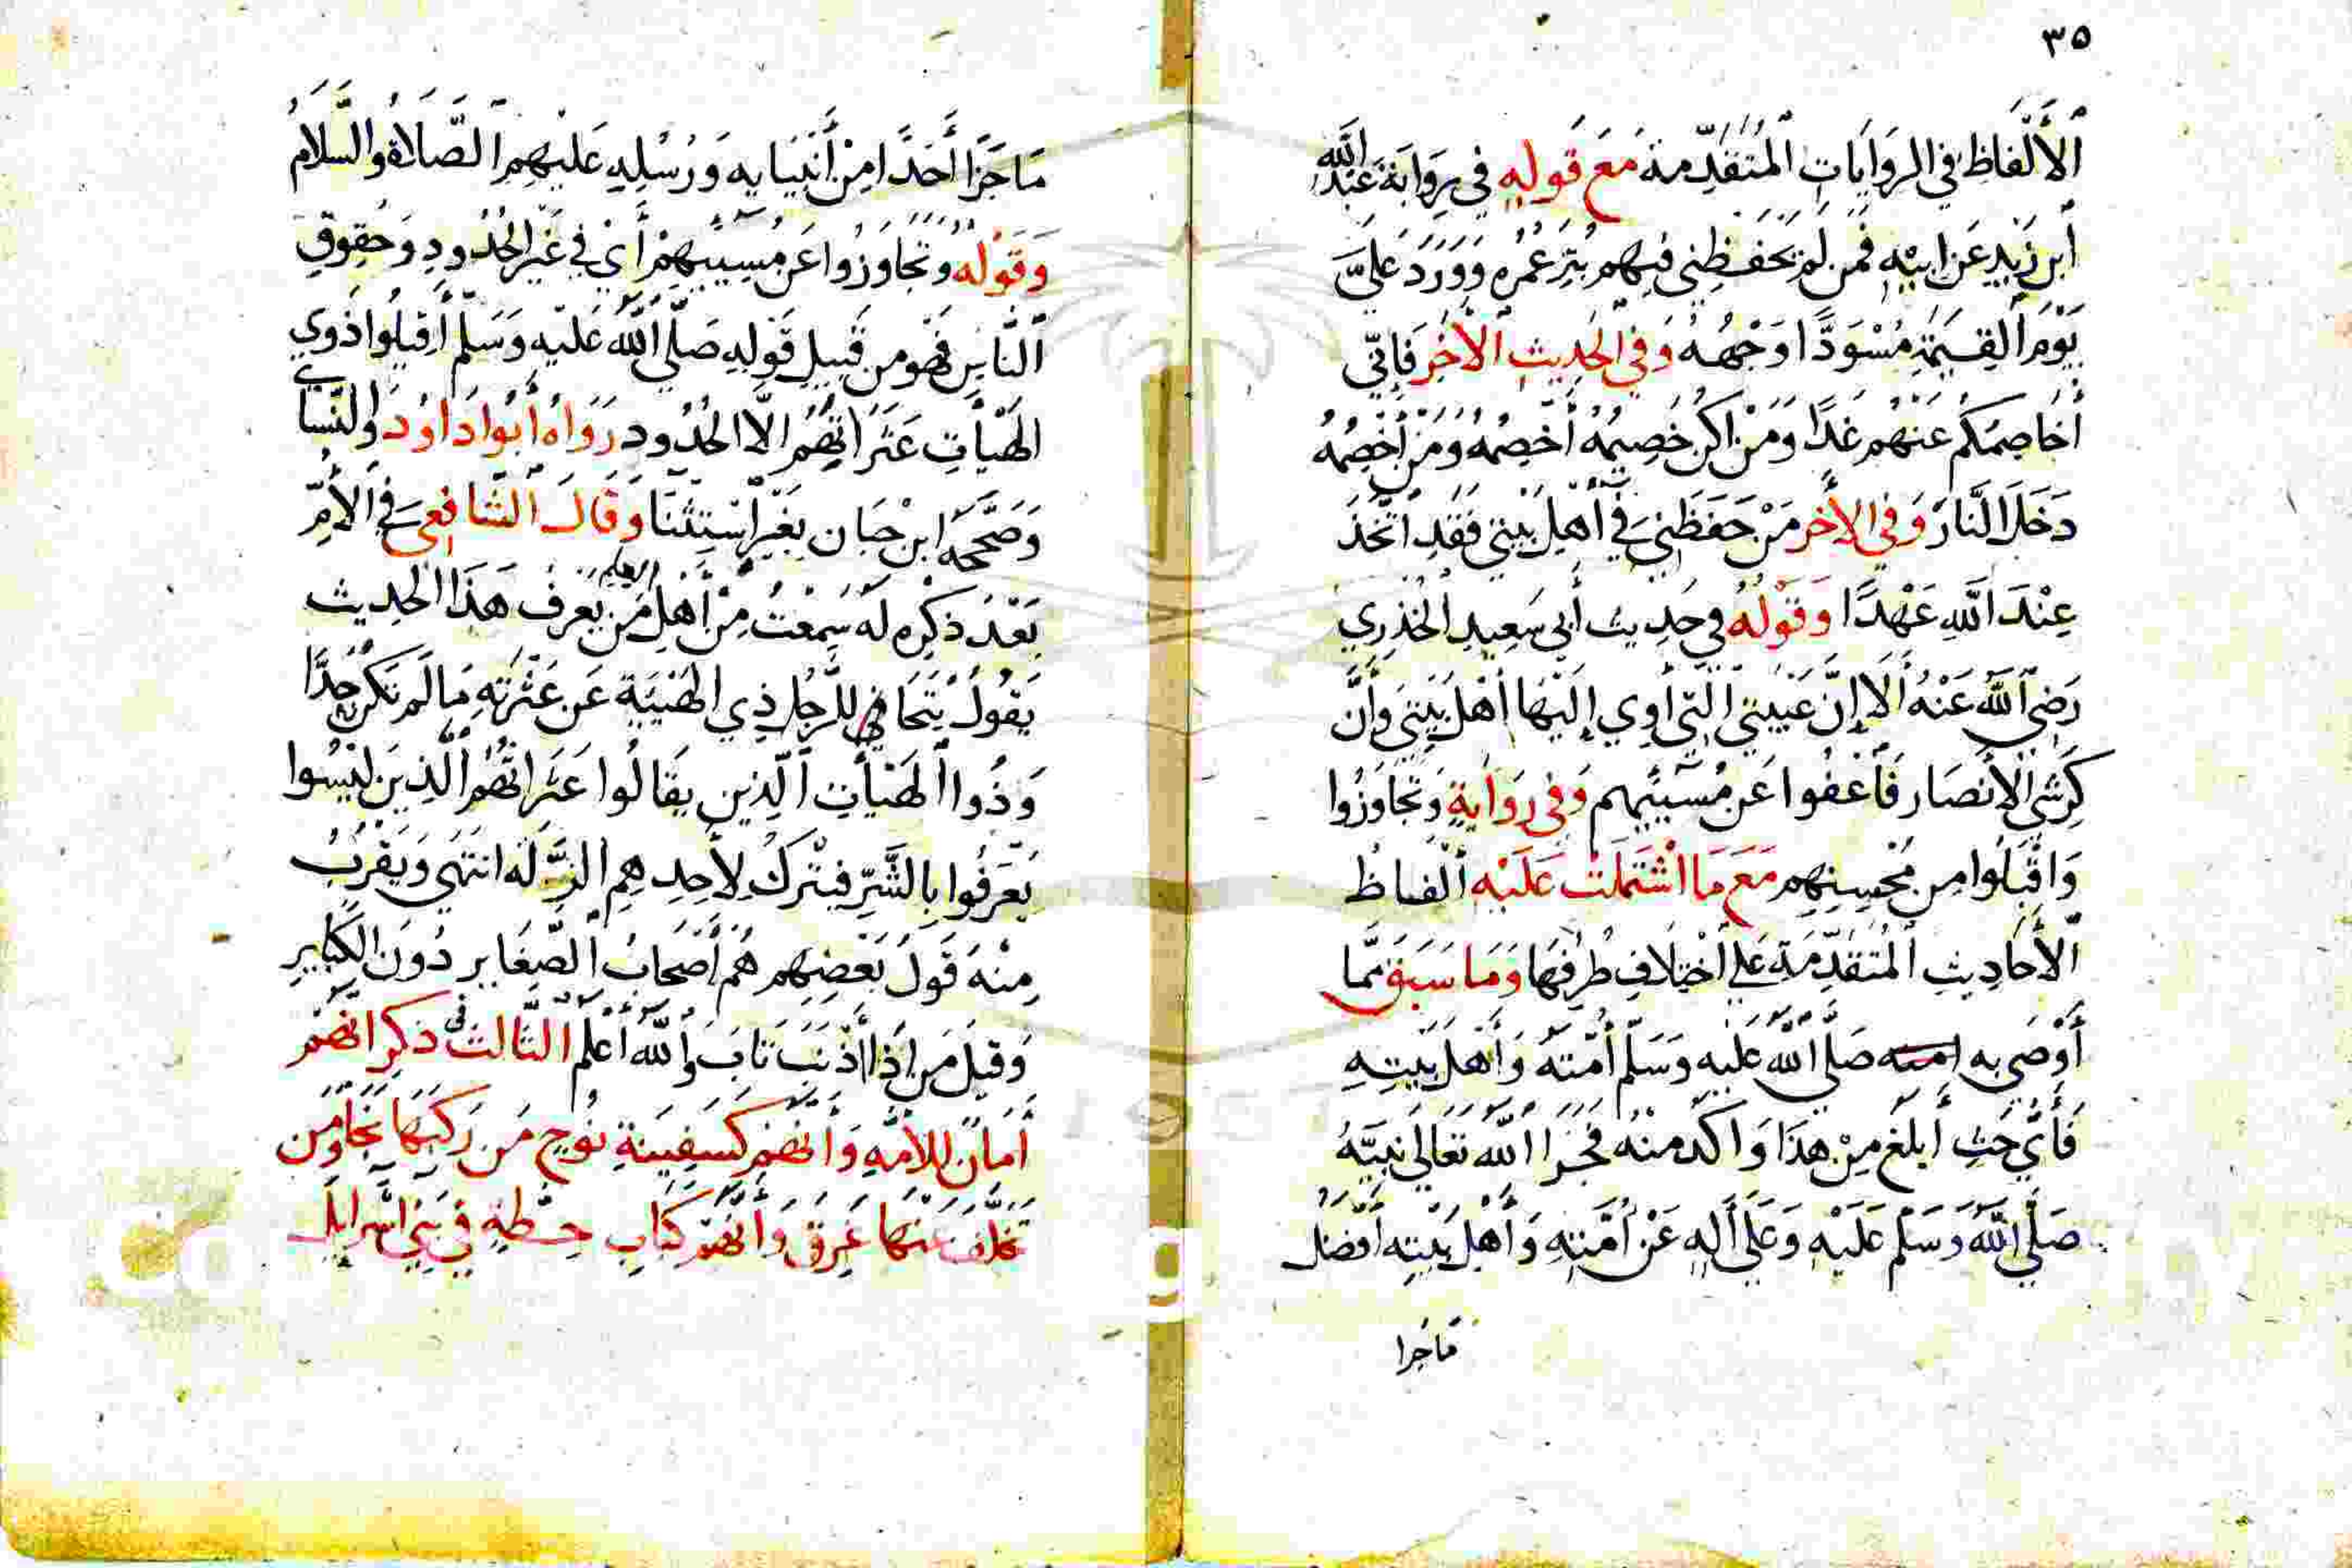 ٣٥
الألفاظ في الروايات المتقدمة مع قوله في رواية عبد الله
ابن زيد عن ابيه فمن لم يخفظني فيهم بتر عمره وورد علي
يوم القيمة مسودا وجهه وفي الحديث الأخر فاني
أخاصمكم عنهم غدا ومن اكن خصيمه أخصمه ومن أخصمه
دخل النار وفي الأخر من حفظني في أهل بيتي فقد اتخذ
عند الله عهدا وقوله في حديث أبي سعيد الخذري
رضي الله عنه ألا إن عيبتي التي أوي إليها أهل بيتي وأن
كرشي الأنصار فأعفوا عن مسيئهم وفي رواية وتجاوزوا
واقبلوا من محسنهم مع ما اشتملت عليه ألفاظ
الأحاديث المتقدمة علي اختلاف طرقها وما سبق مما
أوصي به امته صلي الله عليه وسلم أمته وأهل بيته
فأي حث أبلغ من هذا واكد منه فجزا الله تعالي نبيه
صلي الله وسلم عليه وعلي أله عن أمته وأهل بيته أفضل
ماجزا
ما جزا أحدا من أنبيايه ورسله عليهم الصلاة والسلام
وقوله وتجاوزوا عن مسيئهم أي في غير الحدود وحقوق
الناس فهو من قبيل قوله صلي الله عليه وسلم أقيلوا ذوي
الهيأت عثراتهم الا الحدود رواه أبوا داود والنساي
وصححه ابن حبان بغير استثنا وقال الشافعي في الأم
بعد ذكره له سمعت من أهل العلم من يعرف هذا الحديث
يقول يتجافي للرجل ذي الهيية عن عثرته ما لم تكن حدا
وذوا الهيأت الذين يقالوا عثراتهم الذين ليسوا
يعرفوا بالشر فيترك لأحدهم الزلة انتهي ويقرب
منه قول بعضهم هم أصحاب الصغاير دون الكباير
وقيل من إذا أذنب تاب والله أعلم الثالث في ذكر انهم
أمان للأمه وأنهم كسفينة نوح من ركبها نجا ومن
تخلف عنها غرق وأنهم كباب حطة في بني اسرايل